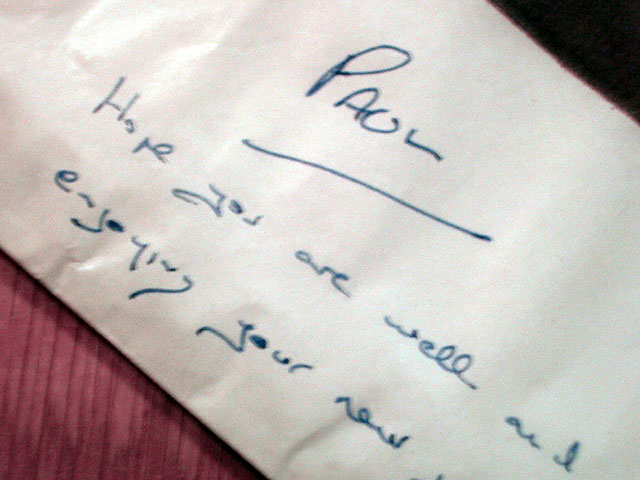 PAUL
Hope you are well and
enjoying your new